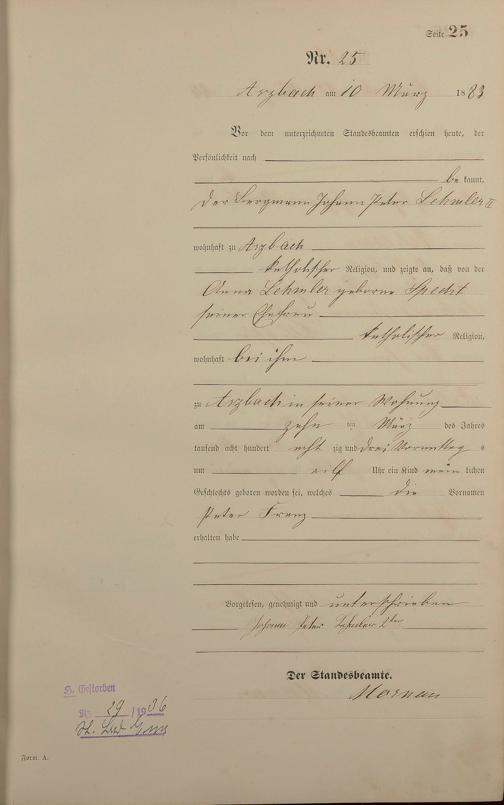 Seite 25
Nr. 25
Arzbach am 10 März 1883
Vor dem unterzeichneten Standesbeamten erschien heute, der
Persönlichkeit nach
be kannt,
der Bergmann Johann Peter Lehmler II
wohnhaft zu Arzbach
katholischer Religion, und zeigte an, daß von der
Anna Lehmler geborne Specht
seiner Ehefrau
katholischer Religion,
wohnhaft bei ihm
zu Arzbach in seiner Wohnung
am zehn ten März des Jahres
tausend acht hundert acht zig und drei Vormittag s
um eilf Uhr ein Kind männ lichen
Geschlechts geboren worden sei, welches die Vornamen
Peter Franz
erhalten habe
Vorgelesen, genehmigt und unterschrieben
Johann Peter Lehmler 2ter
Der Standesbeamte.
H. Gestorben
Nr. 29/1936
St.
Form. A.